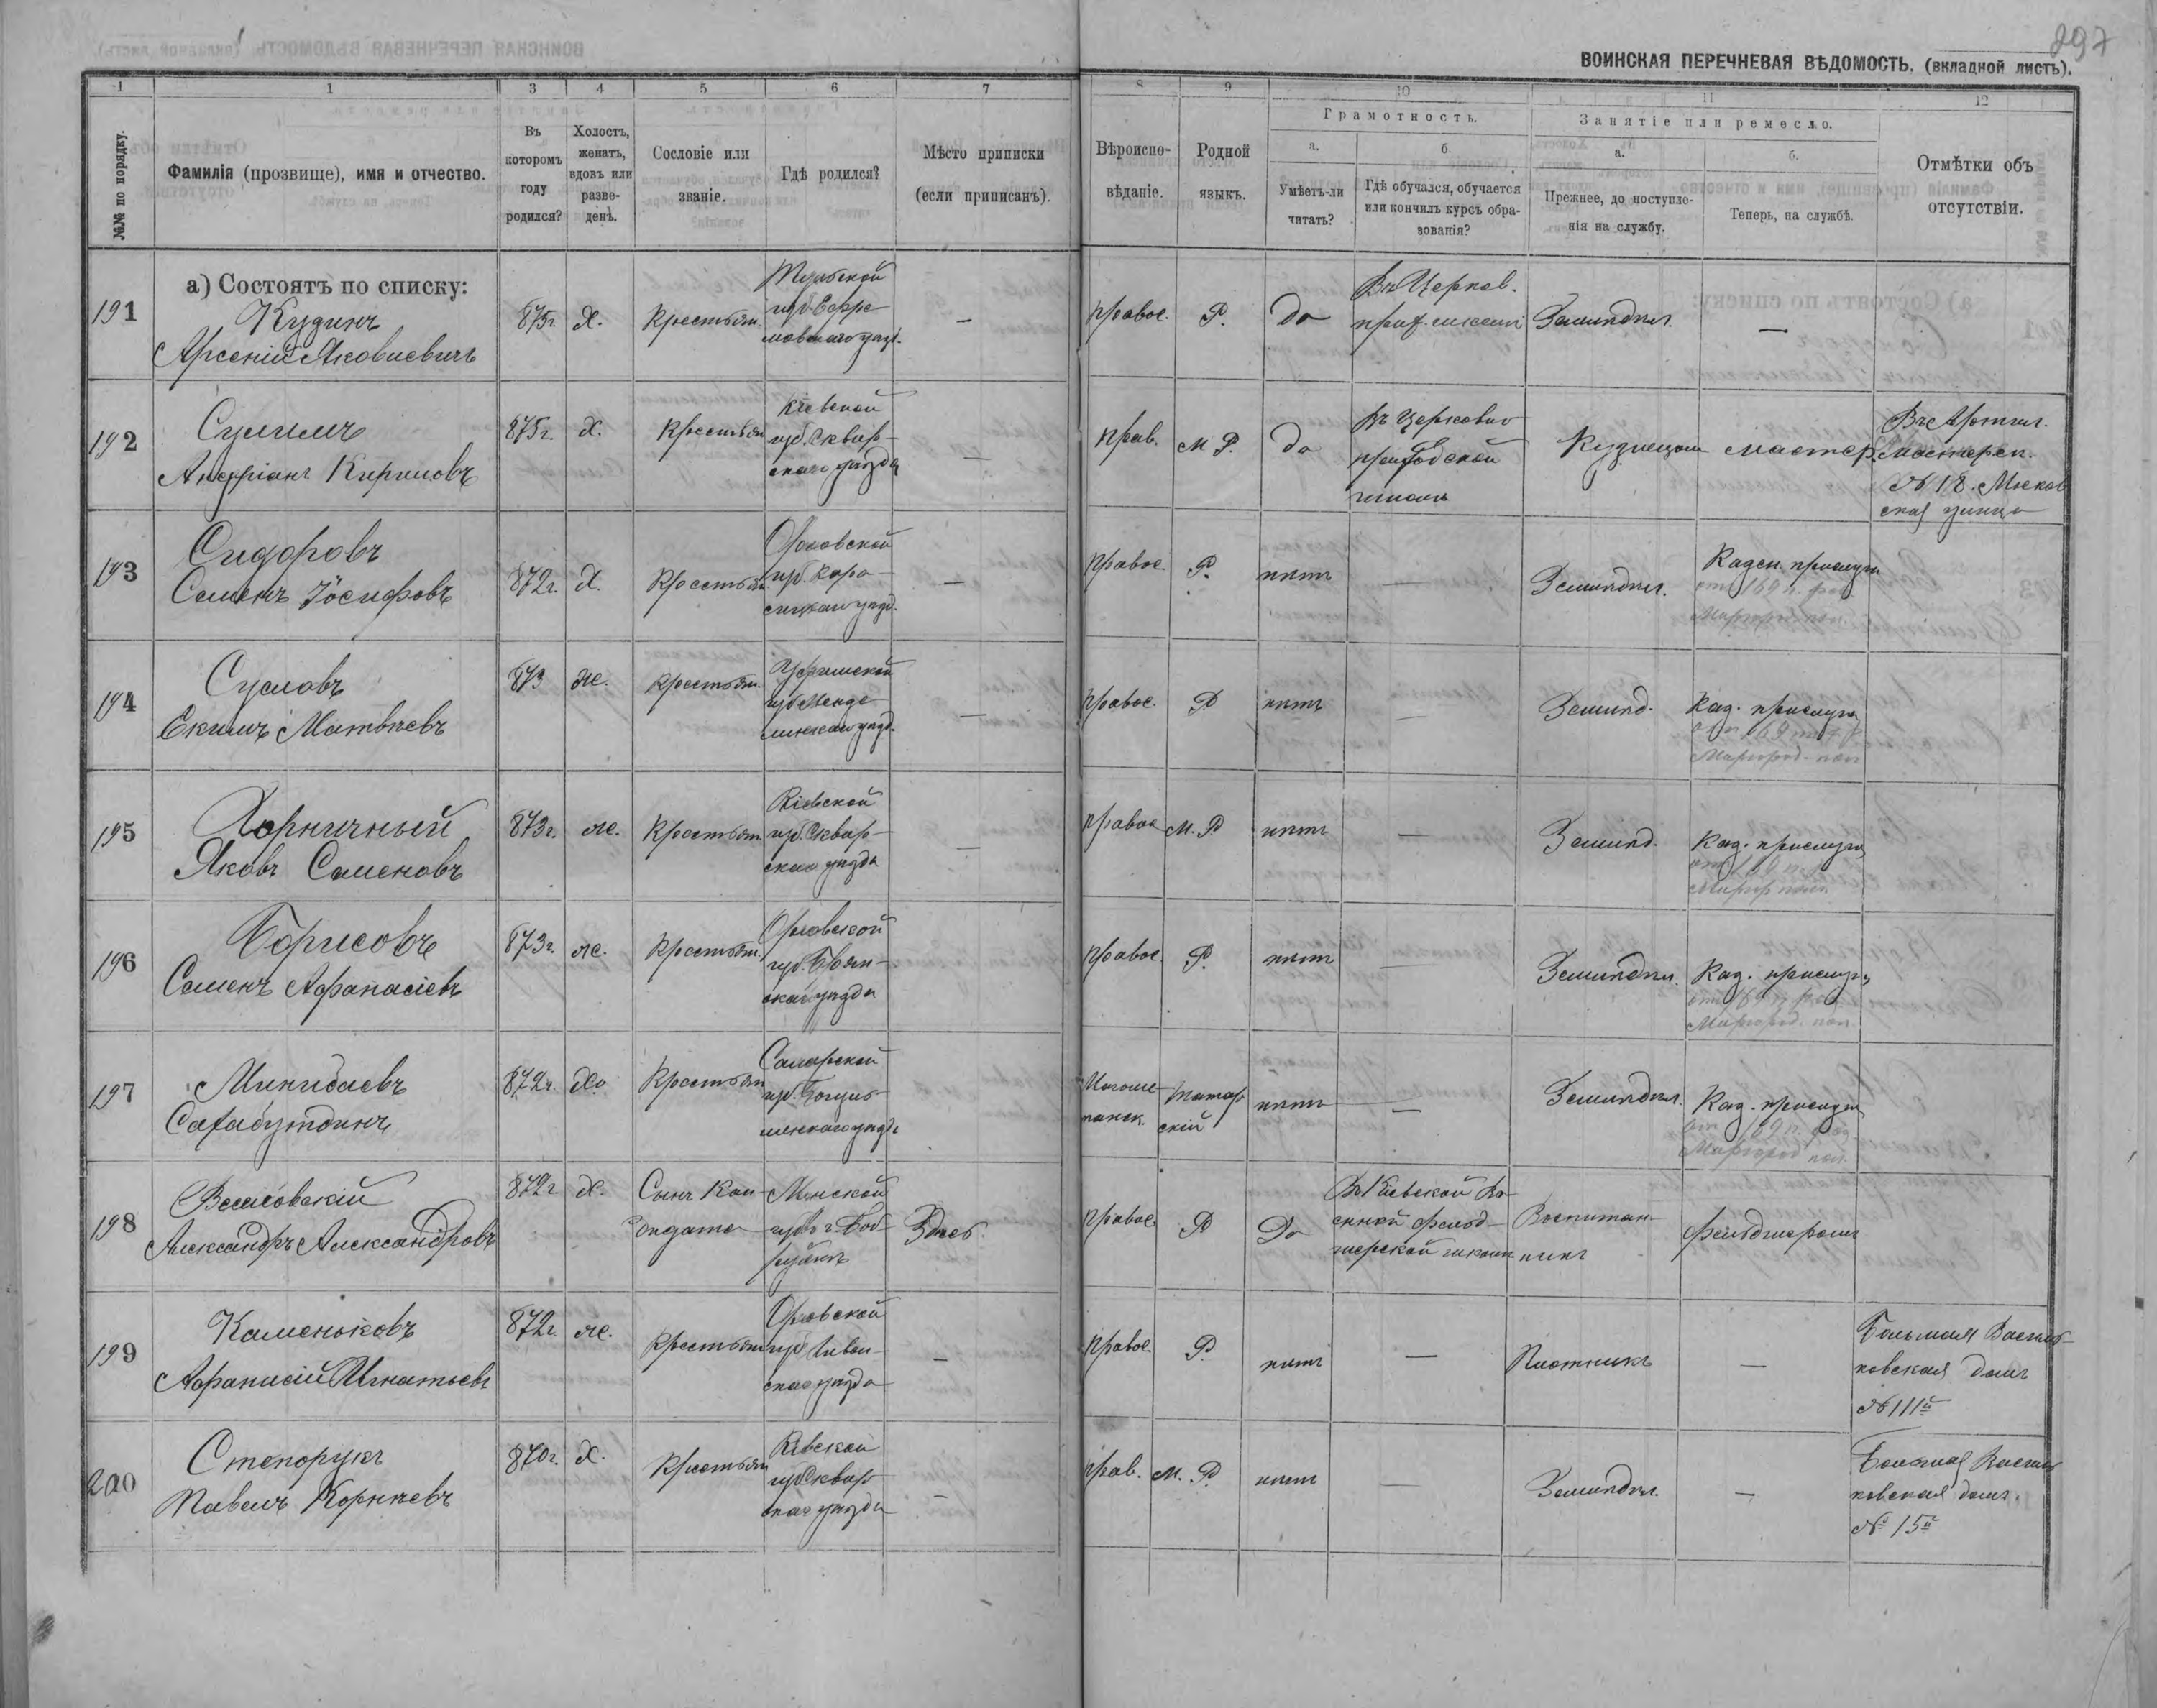 297
ВОИНСКАЯ ПЕРЕЧНЕВАЯ ВѢДОМОСТЬ. (вкладной листъ).
1 1 3 4 5 6 7 8 9 10 11 12
№№ по порядку.
Фамилія (прозвище), имя и отчество.
Въ которомъ году родился?
Холостъ, женатъ, вдовъ или разве-денъ.
Сословіе или званіе.
Гдѣ родился?
Мѣсто приписки (если приписанъ).
Вѣроиспо-вѣданіе.
Родной языкъ.
Грамотность.
а. Умѣетъ-ли читать?
б. Гдѣ обучался, обучается или кончилъ курсъ обра-зованія?
Занятіе или ремесло.
а. Прежнее, до поступле-нія на службу.
б. Теперь, на службѣ.
Отмѣтки объ отсутствіи.
а) Состоятъ по списку:
191 Кудинъ Арсеній Яковлевичъ 875г. Х. Крестьян. Тульской губ. Ефре-мовскаго уѣзд. — правос. Р. да Въ Церков. прих. школѣ Земледѣл. —
192 Андріанъ Кириловъ 875г. Х. Крестьян Кіевской губ. Сквир-скаго уѣзда — прав. М Р. да Въ Церковно приходской школѣ Кузнецом мастер. Въ Артил. Мастерск. № 18. Москов ская улица
193 Сидоровъ Семенъ Іосифовъ 872г. Х. Крестьян Орловской губ. Кара-чевскаго уѣзд. — правос. Р. нѣтъ — Земледѣл. Казен. прислуга от 169 п. рез. Миргород. пол.
194 Сусловъ Екимъ Матвѣевъ 873 же. крестьян. Уфимской губ. Мензе-линскаго уѣзд. — правос. Р нѣтъ — Землед. Каз. прислуга от 169 п. Миргород. пол
195 Яковъ Семеновъ 873г. же. Крестьян. Кіевской губ. Сквир-скаго уѣзда — правос М. Р нѣтъ — Землед. Каз. прислуга от 169 п. Миргор пол.
196 Борисовъ Семенъ Афанасіевъ 873г. же. Крестьян. Орловской губ. Брян-скаго уѣзда правос. Р. нѣтъ — Земледѣл. Каз. прислуга от 169 п. Миргород. пол.
197 Минибаевъ 872г. Хо Крестьян Самарской губ. Бугуль-минскаго уѣзда Магоме-танск. татар скій нѣтъ — Земледѣл. Каз. прислуга от 169 п. Миргород пол.
198 Александръ Александровъ 872г Х. Сынъ Кан-дидата Минской губ. г. Боб-руйскъ Здѣсь правос. Р Да Въ Кіевской Во-енной фельд-шерской школѣ Воспитан-никъ фельдшеромъ
199 Каменьковъ Афанасій Игнатьевъ 872г. же. Крестьян Орловской губ. Ливен-скаго уѣзда — правос. Р. нѣтъ — Плотникъ — Большая Василь-ковская домъ № 111й
200 Степорукъ Павелъ Корнѣевъ 870г. Х. Крестьян Кіевской губ. Сквир-скаго уѣзда — прав. М. Р. нѣтъ — Земледѣл. — Большая Василь-ковская домъ. № 15й